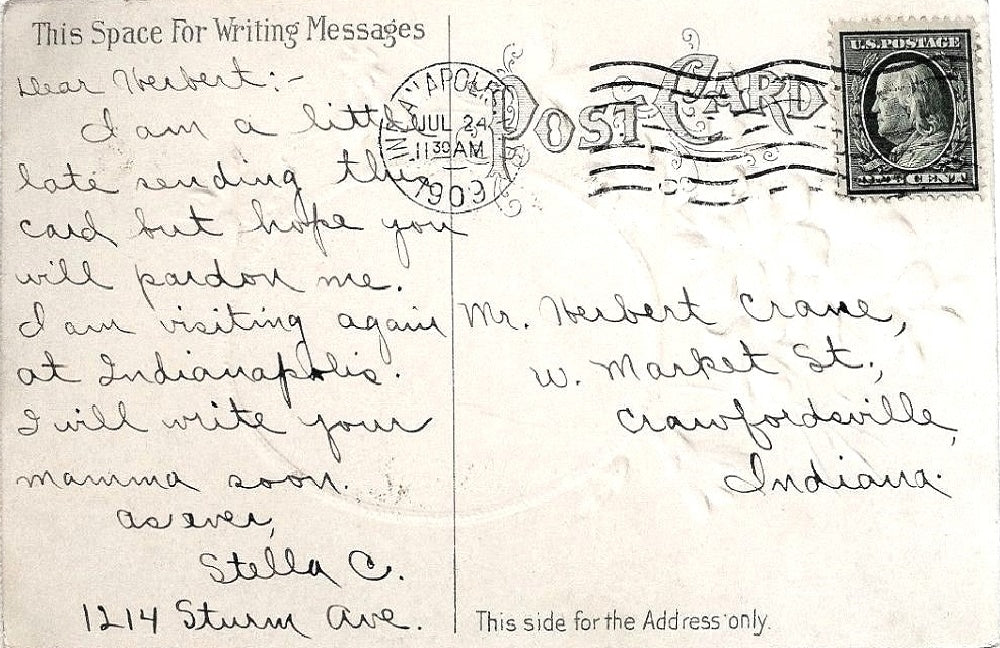 This Space For Writing Messages
Dear Herbert:-
I am a little
late sending this
card but hope you
will pardon me.
I am visiting again
at Indianapolis.
I will write your
mamma soon.
as ever,
Stella C.
1214 Sturm Ave.
INDIANAPOLIS
JUL 24
11 30 AM
1909
POST CARD
U.S. POSTAGE
ONE CENT
Mr. Herbert Crane,
W. Market St.,
Crawfordsville,
Indiana.
This side for the Address only.